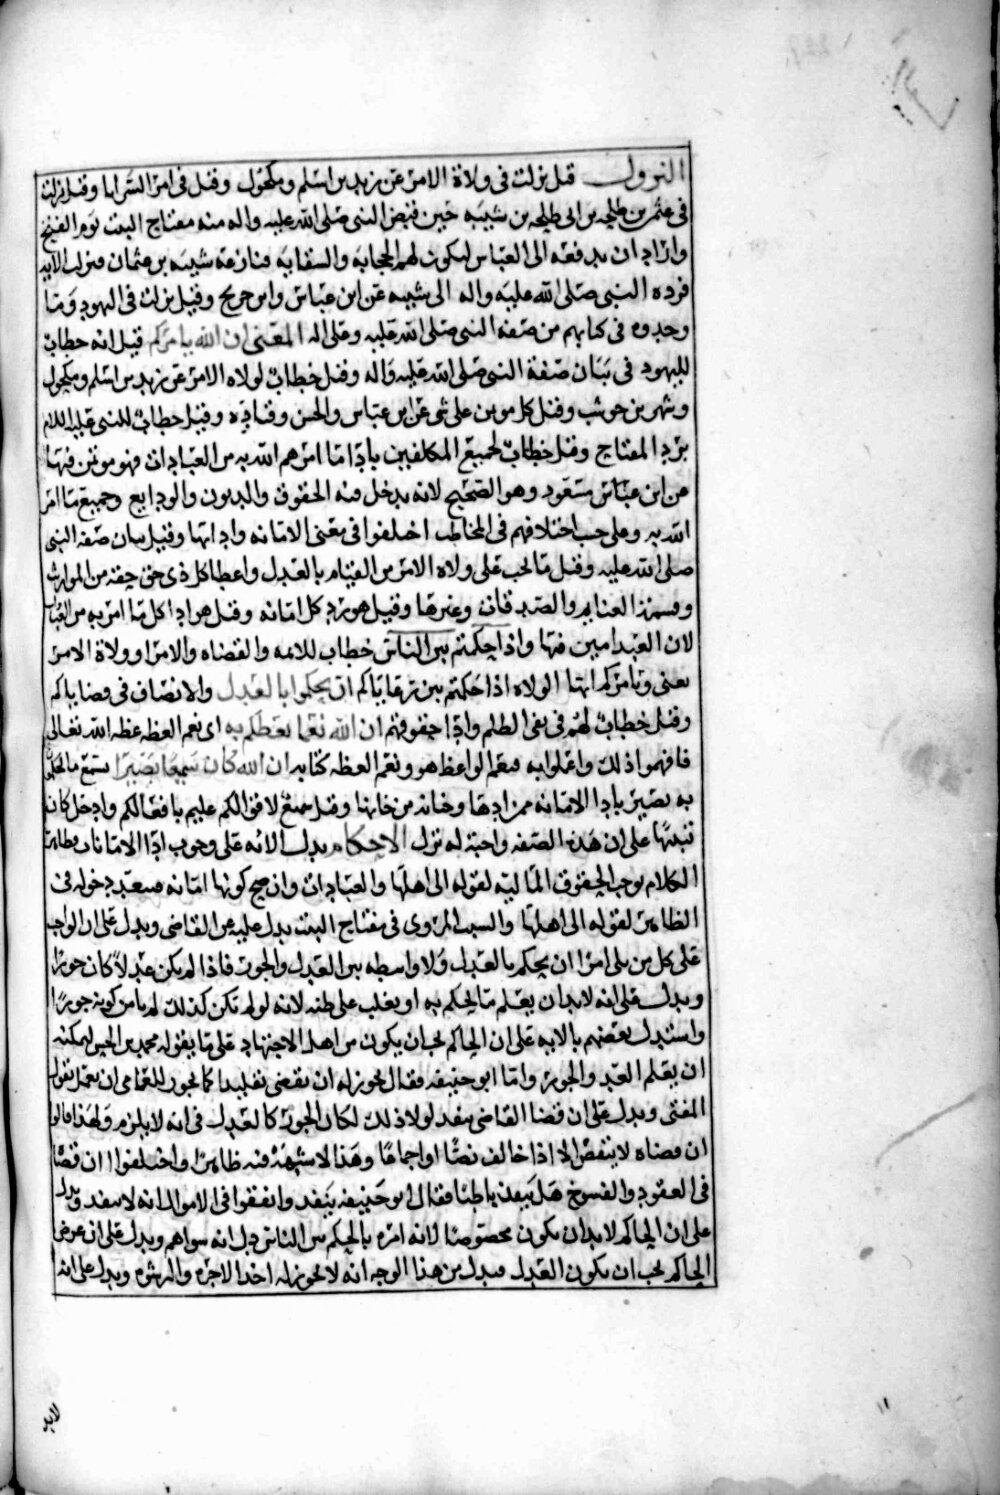 النزول قيل نزلت في ولاة الامر عن زيد بن اسلم ومكحول وقيل في امرا السرايا وقيل نزلت
في عثمن بن طلحه بن ابي طلحه بن شيبه حين قبض النبي صلى الله عليه واله منه مفتاح البيت يوم الفتح
واراد ان يدفعه الى العباس ليكون لهم الحجابه والسقايه فنازعه شيبه بن عثمان فنزلت الايه
فرده النبي صلى الله عليه واله الى شيبه عن ابن عباس وابن جريج وقيل نزلت في اليهود وما
وجدوه في كتابهم من صفه النبي صلى الله عليه وعلى اله المعنى ان الله يامركم قيل انه خطاب
لليهود في بيان صفة النبي صلى الله عليه واله وقيل خطاب لولاه الامر عن زيد بن اسلم ومكحول
وشهر بن حوشب وقيل كل مؤتمن على شي عن ابن عباس والحسن وقتاده وقيل خطاب للنبي عليه السلام
برد المفتاح وقيل خطاب لجميع المكلفين بادا ما امرهم الله به من العبادات فهو مؤتمن فيها
عن ابن عباس مسعود وهو الصحيح لانه يدخل فيه الحقوق والديون والودايع وجميع ما امر
الله به وعلى حسب اختلافهم في المخاطب اختلفوا في معنى الامانه وادايها وقيل بيان صفه النبي
صلى الله عليه وقيل ما يجب على ولاه الامر من القيام بالعدل واعطا كل ذي حق حقه من المواريث
وقسمة الغنايم والصدقات وغيرها وقيل هو رد كل امانه وقيل هو ادا كل ما امر به من العبادات
لان العبد امين فيها واذا حكمتم بين الناس خطاب للائمه والقضاه والامرا وولاة الامر
يعني ويامركم ايها الولاه اذا حكمتم بين رعاياكم ان تحكموا بالعدل والانصاف في قضاياكم
وقيل خطاب لهم في نفي الظلم وادا حقوقهم ان الله نعما يعظكم به اي نعم العظه عظه الله تعالى
فافهموا ذلك واعملوا به فنعم الواعظ هو ونعم العظه كتابه ان الله كان سميعا بصيرا يسمع ما تحكمون
به بصير بادا الامانه ممن ادها وخيانه من خانها وقيل سميع لاقوالكم عليم بافعالكم وادخل كان
تنبيها على ان هذه الصفه واجبة له لم تزل الاحكام يدل الايه على وجوب ادا الامانات وظاهر
الكلام يوجب الحقوق الماليه لقوله الى اهلها والعبادات وان صح كونها امانه فيبعد دخوله في
الظاهر لقوله الى اهلها والسبب المروي في مفتاح البيت يدل عليه عن القاضي ويدل على ان الواجب
على كل من يلي امرا ان يحكم بالعدل ولا واسطه بين العدل والجور فاذا لم يكن عدلا كان جورا
ويدل على انه لا بد ان يعلم ما يحكم به او يغلب على ظنه لانه لو لم يكن كذلك لم يامن كونه جورا
واستدل بعضهم بالايه على ان الحاكم يجب ان يكون من اهل الاجتهاد على ما يقوله محمد بن الحسن ليمكنه
ان يعلم العدل والجور واما ابو حنيفه فقال يجوز له ان يقضي تقليدا كما يجوز للعامي ان يعمل بقول
المفتي ويدل على ان قضا القاضي ينفذ لولا ذلك لكان الجور كالعدل في انه لا يلزم ولهذا قالوا
ان قضاه لا ينقض الا اذا خالف نصا او اجماعا وهذا لا شبهة فيه ظاهرا واختلفوا ان قضا
في العقود والفسوخ هل ينفذ باطنا فقال ابو حنيفه ينفذ واتفقوا في الاموال انه لا ينفذ ويدل
على ان الحاكم لا بد ان يكون مخصوصا لانه امره بالحكم بين الناس فدل انه سواهم ويدل على ان غرض
الحاكم يجب ان يكون العدل فيدل من هذا الوجه انه لا يجوز له اخذ الاجره والرشوه ويدل على انه
لا بد